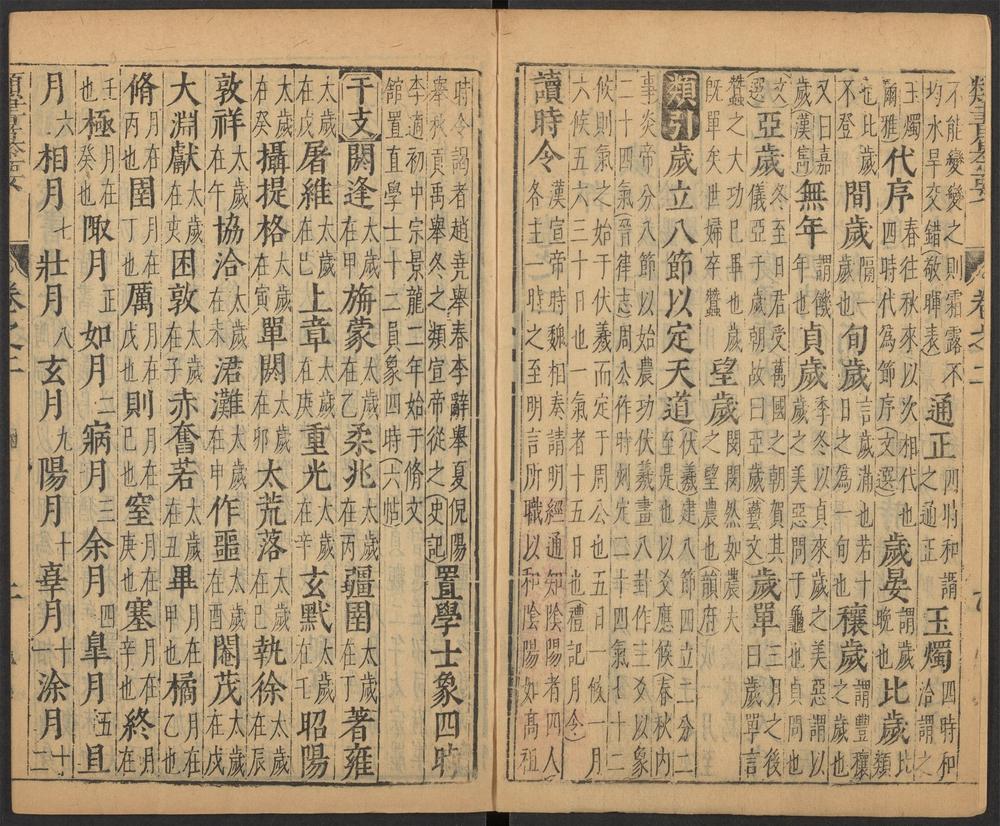 類書纂要 卷之二
不能變變之則霜露不均水旱交錯(敬暉表)通正四時和謂之通正玉燭四時和洽謂之
玉燭(爾雅)代序春往秋來以次相代也四時代為節序(文選)歲晏謂歲晚也比歲比類
也比歲不登間歲隔一歲也旬歲言歲滿也若十日之為一旬也穰歲謂豐穰之歲也
又曰嘉歲(漢書)無年謂饑年也貞歲季冬以貞來歲之美惡謂以歲之美惡問于龜也貞問也
(文選)亞歲冬至日君受萬國之朝賀其儀亞于歲朝故曰亞歲(藝文)歲單三月之後曰歲單言
蠶之大功已畢也歲既單矣世婦卒蠶望歲閔閔然如農夫之望農也(韻府)
類引歲立八節以定天道伏羲建八節四立二分二至是也以爻應候(春秋內
事炎帝分八節以始農功伏羲畫八卦作三爻以象二十四氣(晉律志)周公作時則定二十四氣七十二
候則氣之始于伏羲而定于周公也五日一候一月六候五六三十日也一氣者十五日也禮記月令)
讀時令漢宣帝時魏相奏請明經通知陰陽者四人各主一時時之至明言所職以和陰陽如高祖
時令謁者趙堯舉春李辭舉夏倪陽舉秋貢禹舉冬之類宣帝從之(史記)置學士象四時
李適初中宗景龍二年始于脩文館置直學士十二員象四時(六帖)
干支閼逢太歲在甲旃蒙太歲在乙柔兆太歲在丙疆圉太歲在丁著雍
太歲在戊屠維太歲在己上章太歲在庚重光太歲在辛玄黓太歲在壬昭陽
太歲在癸攝提格太歲在寅單閼太歲在卯太荒落太歲在巳執徐太歲在辰
敦祥太歲在午協洽太歲在未涒灘太歲在申作噩太歲在酉閹茂太歲在戊
大淵獻太歲在亥困敦太歲在子赤奮若太歲在丑畢月在甲也橘月在乙也
脩月在丙也圉月在丁也厲月在戊也則月在己也窒月在庚也塞月在辛也終月在
壬也極月在癸也陬月正如月二寎月三余月四皐月五且
月六相月七壯月八玄月九陽月十辜月十一涂月十二
類書纂要 卷之二